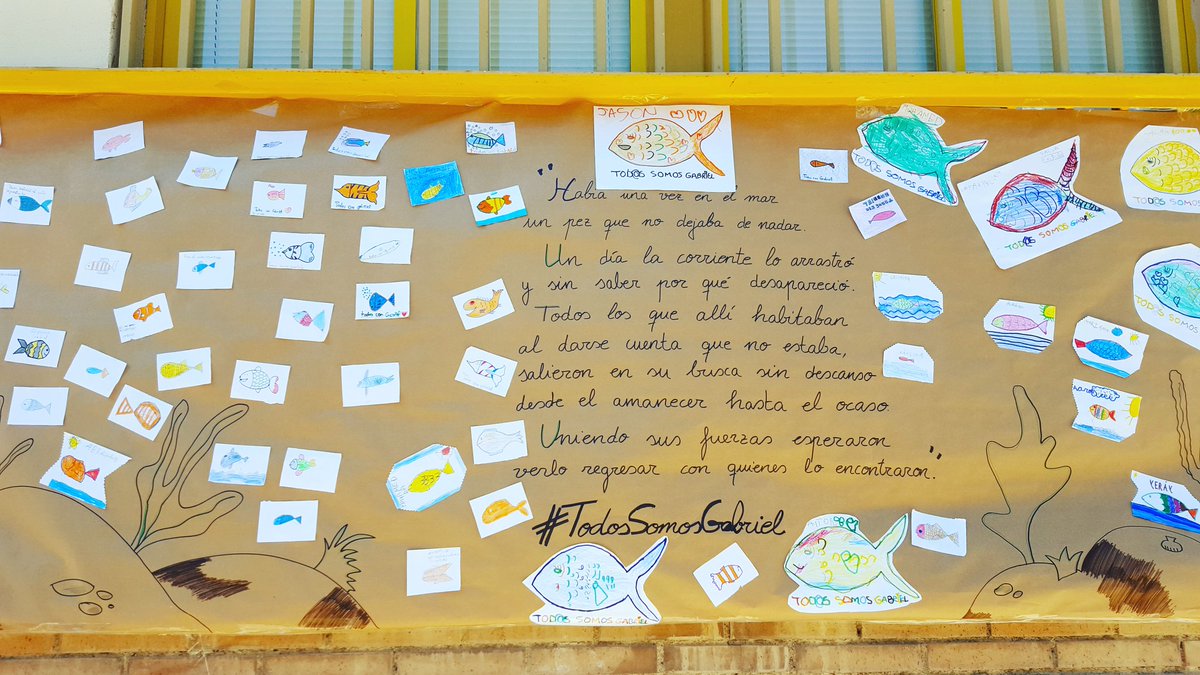 JASON
TODOS SOMOS GABRIEL
TODOS SOMOS GABRIEL
TODOS SOMOS GABRIEL
"Había una vez en el mar
un pez que no dejaba de nadar.
Un día la corriente lo arrastró
y sin saber por qué desapareció.
Todos los que allí habitaban
al darse cuenta que no estaba,
salieron en su busca sin descanso
desde el amanecer hasta el ocaso.
Uniendo sus fuerzas esperaron
verlo regresar con quienes lo encontraron."
#TodosSomosGabriel
todos con Gabriel
TODOS SOMOS GABRIEL
TODOS SOMOS GABRIEL
TODOS SOMOS
KERAY
TODOS SOMOS GABRIEL
TODOS SOMOS GABRIEL